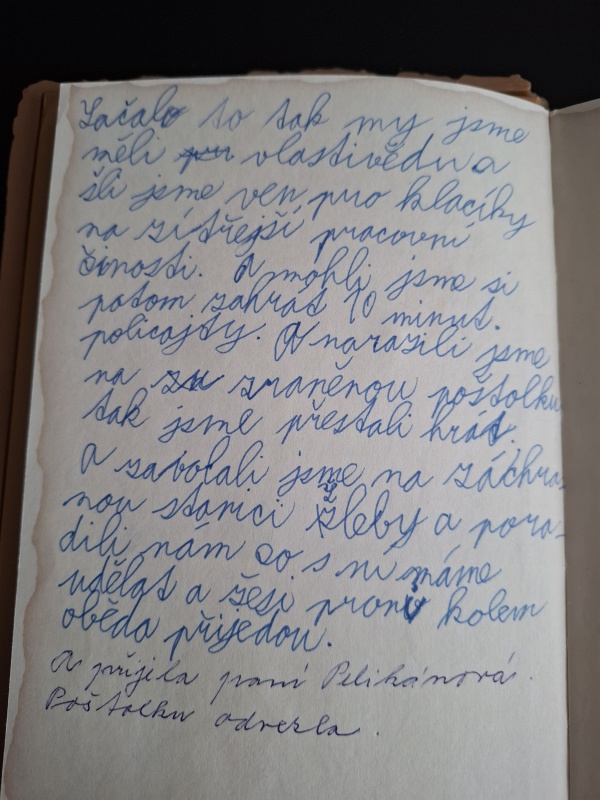 Začalo to tak my jsme
měli vlastivědu a
šli jsme ven pro klacíky
na zítřejší pracovní
činosti. A mohli jsme si
potom zahrát 10 minut.
policajty. A narazili jsme
na zraněnou poštolku
tak jsme přestali hrát.
A zavolali jsme na záchra-
nou stanici Žleby a pora-
dili nám co s ní máme
udělat a žesi proní kolem
oběda přijedou.
A přijela paní Pelikánová.
Poštolku odvezla.